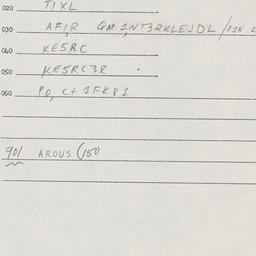 020 TIXL
030 AFIR QM 1NT3RKLEJDL /FIN 1
040 KE5RC
050 KE5RC38
060 PO, C+ 1FK81
901 AROUS (150